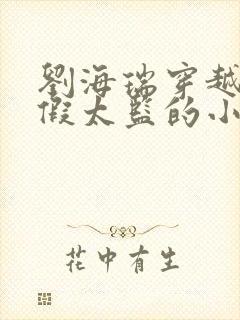 劉海瑞穿越
假太監的小
花中有生